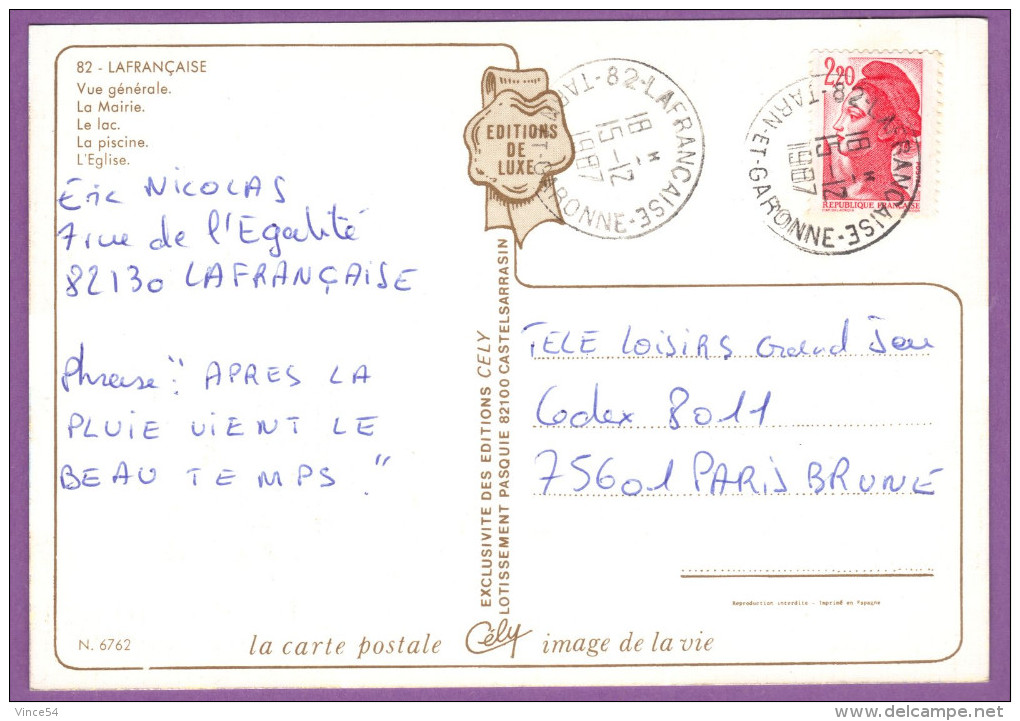 82 - LAFRANÇAISE
Vue générale.
La Mairie.
Le lac.
La piscine.
L'Eglise.
Eric NICOLAS
7 rue de l'Egalité
82130 LAFRANÇAISE
Phrase: "APRES LA
PLUIE VIENT LE
BEAU TEMPS."
N. 6762
EDITIONS
DE
LUXE
EXCLUSIVITE DES EDITIONS CELY
LOTISSEMENT PASQUIE 82100 CASTELSARRASIN
82-LAFRANCAISE-TARN-ET-GARONNE-
18 H
15-12
1987
2,20
REPUBLIQUE FRANCAISE
82-LAFRANCAISE-TARN-ET-GARONNE-
18 H
15-12
1987
TELE LOISIRS Grand Jeu
Cedex 8011
75601 PARIS BRUNE
Reproduction interdite - Imprimé en Espagne
la carte postale Cély image de la vie
Vince54
delcampe.net